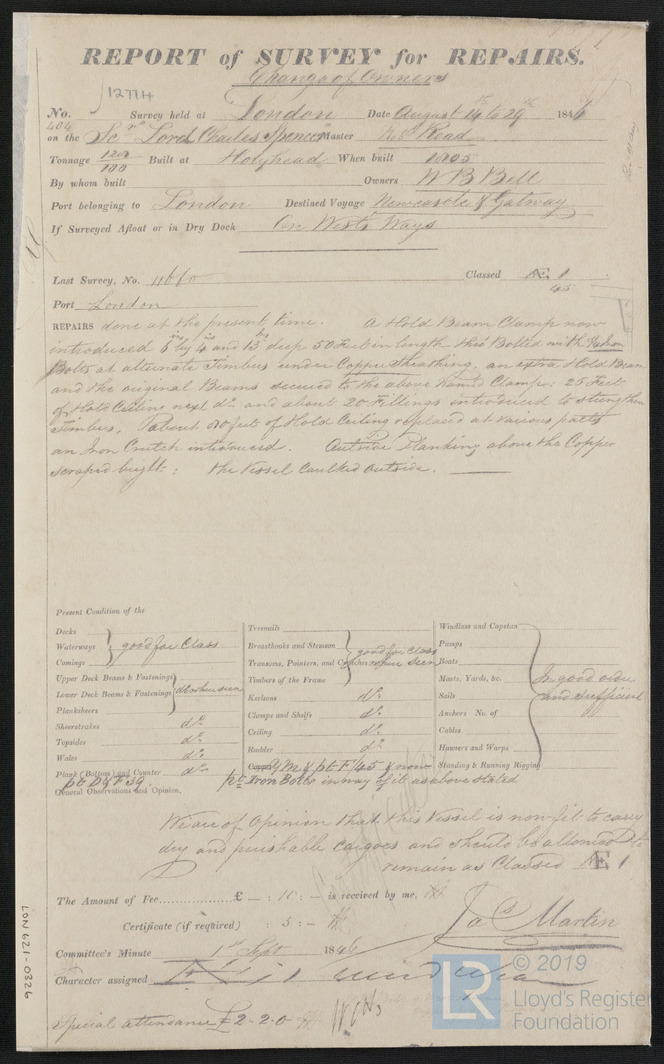 REPORT of SURVEY for REPAIRS.
Change of Owners
12774
No. 404 Survey held at London Date August 14th to 29th 1846
on the Scr Lord Charles Spencer Master Read
Tonnage 120/100 Built at Holyhead When built 1805
By whom built Owners W B Bell
Port belonging to London Destined Voyage Newcastle & Galway
If Surveyed Afloat or in Dry Dock On Ways
Last Survey, No. 1160 Classed Æ 1
45
Port London
REPAIRS done at the present time. A Hold Beam Clamp now
introduced 6 ins by 4 ins and 13 deep 50 Feet in length thro Bolted with
Bolts at alternate Timbers under Copper Sheathing, an extra Hold Beam
and the original Beams secured to the above named Clamp: 25 Feet
of Hold Ceiling next do and about 20 Fillings introduced to strengthen
Timbers, about feet of Hold Ceiling replaced at various parts
an Iron Crutch introduced. Outside Planking above the Copper
scraped bright: the Vessel Caulked outside.
Present Condition of the
Decks
Waterways good for Class
Comings
Upper Deck Beams & Fastenings
Lower Deck Beams & Fastenings do where seen
Planksheers
Sheerstrakes do
Topsides do
Wales do
Plank (Bottom) and Counter do
Treenails
Breasthooks and Stemson good for Class
Transoms, Pointers, and Crutches where seen
Timbers of the Frame
Keelsons do
Clamps and Shelfs do
Ceiling do
Rudder do
Copper YM & pt F/45 & now
pt Iron Bolts in way of it as above stated
Windlass and Capstan
Pumps
Boats
Masts, Yards, &c. In good order
Sails and sufficient
Anchors No. of
Cables
Hawsers and Warps
Standing & Running Rigging
General Observations and Opinion,
We are of Opinion that this Vessel is now fit to carry
dry and perishable cargoes and should be allowed to
remain as Classed Æ 1
The Amount of Fee £ – : 10 : – is received by me,
Certificate (if required) : 5 : –
Jas Martin
Committee's Minute 1st Sept 1846
Character assigned Æ 1
Special attendance £ 2-2-0
LON 621-0326
LR
© 2019
Lloyd's Register
Foundation